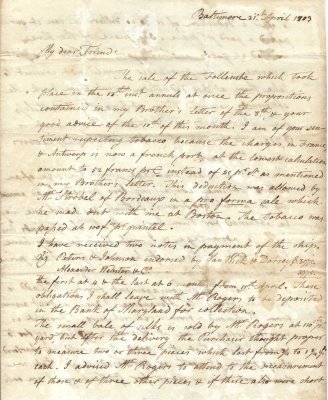 Baltimore 21st April 1803
My dear Friend
The sale of the which took
place on the 18th inst annuls at once the propositions
contained in my Brother's letter of the 8th & your
good advice of the 10th of this month. I am of your sen-
timent respecting tobacco because the charges in France,
& Antwerp is now a french port, at the lowest calculation
amount to 52 francs pr C instead of as mentioned
in my Brothers letter. This deduction was allowed by
Mr Strobel of Bordeaux in a pro forma sale which
he made out with me at Boston. The tobacco was
at pr quintal.
I have received two notes in payment of the ship.
Peters & Johnson endorsed by Van
Alexander Webster & Co
the first at 4 & the last at 6 months from April. These
obligations I shall leave with Mr Rogers to be deposited
in the Bank of Maryland for collection.
The small bale of silks is sold by Mr Rogers at pr
yard but after the delivery the Purchaser thought proper
to measure two or three pieces which last from to
each. I advised Mr Rogers to attend to the measurement
of those & of three other pieces & if these also were short